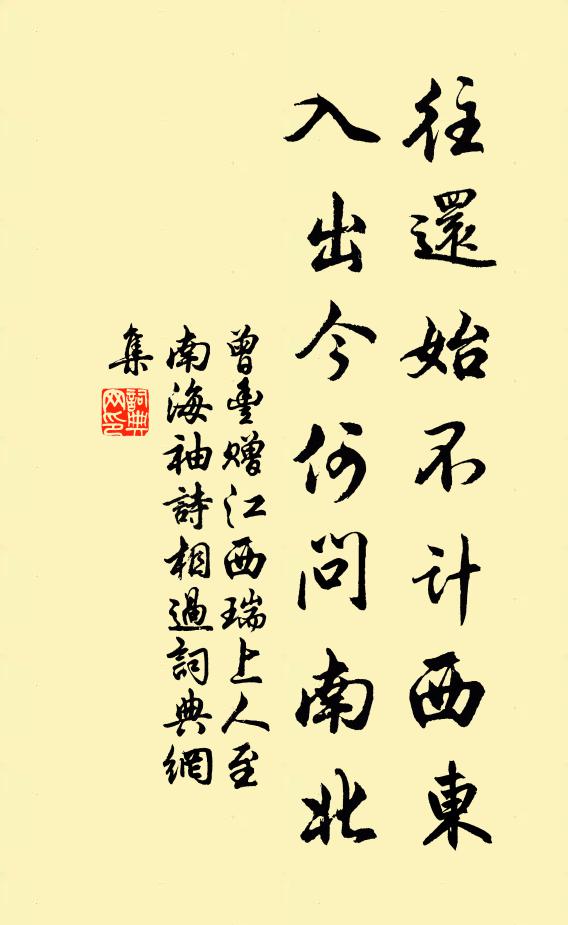 往還始不计西東
入出今何问南北
曾豐赠江西瑞上人至
南海袖詩相過詞典網
集
詞典
网印